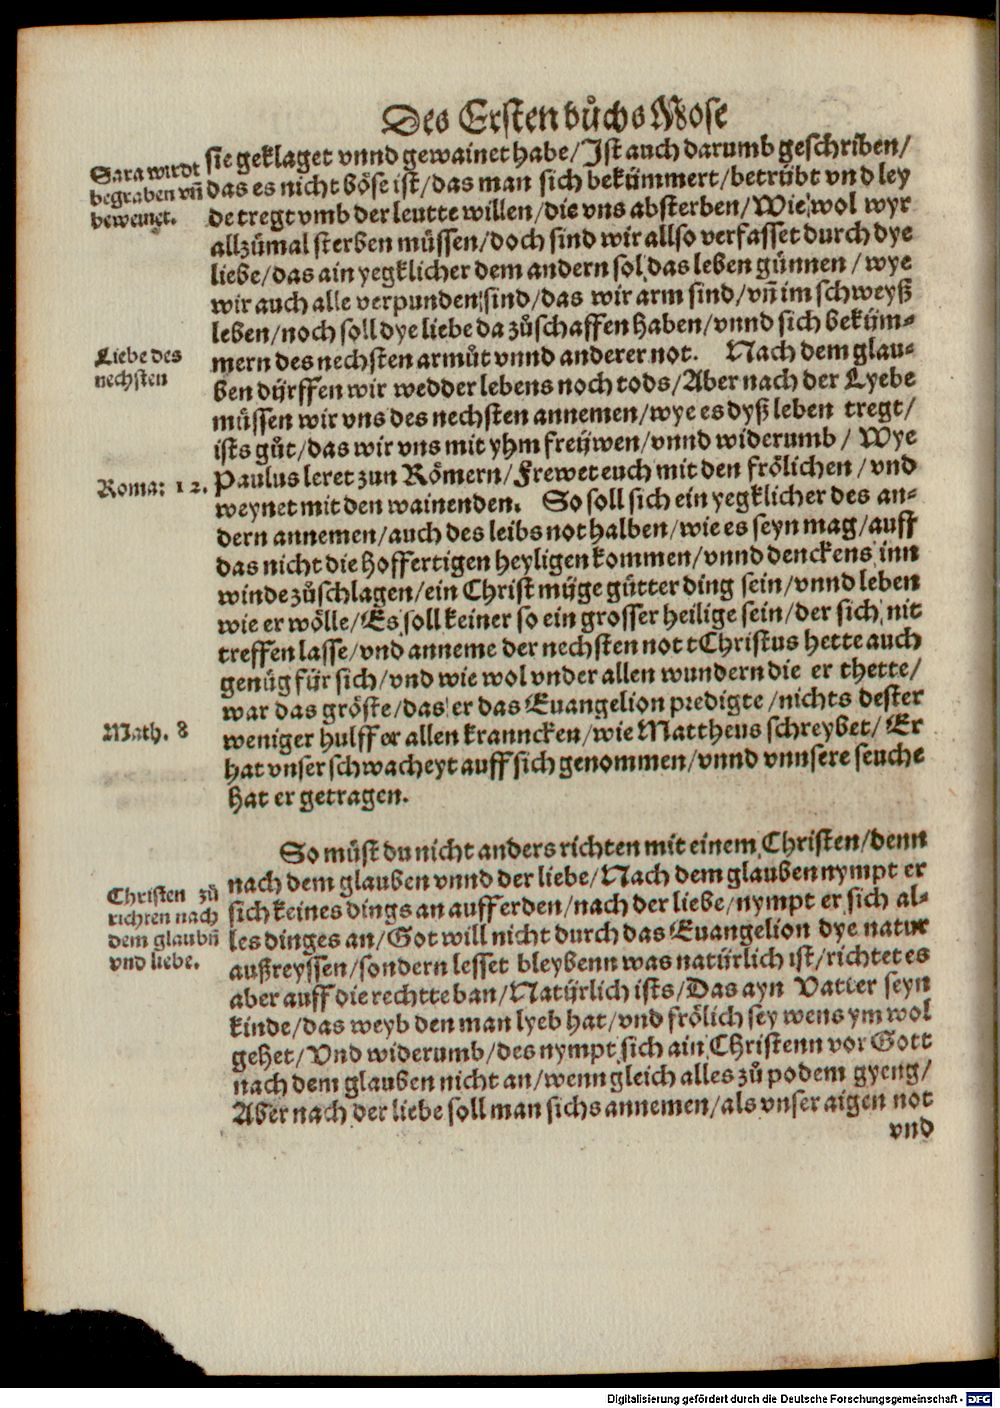 Des Ersten bůchs Mose
Sara wirdt
begraben vñ
beweinet.
sie geklaget vnnd gewainet habe/Ist auch darumb geschriben/
das es nicht böse ist/das man sich bekümmert/betrübt vnd ley
de tregt vmb der leutte willen/die vns absterben/Wie wol wyr
allzůmal sterben müssen/doch sind wir allso verfasset durch dye
liebe/das ain yegklicher dem andern sol das leben günnen/wye
wir auch alle verpunden sind/das wir arm sind/vñ im schweyß
leben/noch soll dye liebe da zůschaffen haben/vnnd sich beküm-
Liebe des
nechsten
mern des nechsten armůt vnnd anderer not. Nach dem glau-
ben dürffen wir wedder lebens noch tods/Aber nach der Lyebe
müssen wir vns des nechsten annemen/wye es dyß leben tregt/
ists gůt/das wir vns mit yhm freüwen/vnnd widerumb/Wye
Roma: 12.
Paulus leret zun Römern/Frewet euch mit den frölichen/vnd
weynet mit den wainenden. So soll sich ein yegklicher des an-
dern annemen/auch des leibs not halben/wie es seyn mag/auff
das nicht die hoffertigen heyligen kommen/vnnd denckens inn
winde zůschlagen/ein Christ müge gůtter ding sein/vnnd leben
wie er wölle/Es soll keiner so ein grosser heilige sein/der sich nit
treffen lasse/vnd anneme der nechsten not tChristus hette auch
genůg für sich/vnd wie wol vnder allen wundern die er thette/
war das gröste/das er das Euangelion predigte/nichts dester
Math. 8
weniger hulff er allen kranncken/wie Mattheus schreybet/Er
hat vnser schwacheyt auff sich genommen/vnnd vnnsere seuche
hat er getragen.
So můst du nicht anders richten mit einem Christen/denn
Christen zů
richten nach
dem glaubñ
vnd liebe.
nach dem glauben vnnd der liebe/Nach dem glauben nympt er
sich keines dings an aufferden/nach der liebe/nympt er sich al-
les dinges an/Got will nicht durch das Euangelion dye natur
außreyssen/sondern lesset bleybenn was natürlich ist/richtet es
aber auff die rechtte ban/Natürlich ists/Das ayn Vatter seyn
kinde/das weyb den man lyeb hat/vnd frölich sey wens ym wol
gehet/Vnd widerumb/des nympt sich ain Christenn vor Gott
nach dem glauben nicht an/wenn gleich alles zů podem gyeng/
Aber nach der liebe soll man sichs annemen/als vnser aigen not
vnd
Digitalisierung gefördert durch die Deutsche Forschungsgemeinschaft - DFG